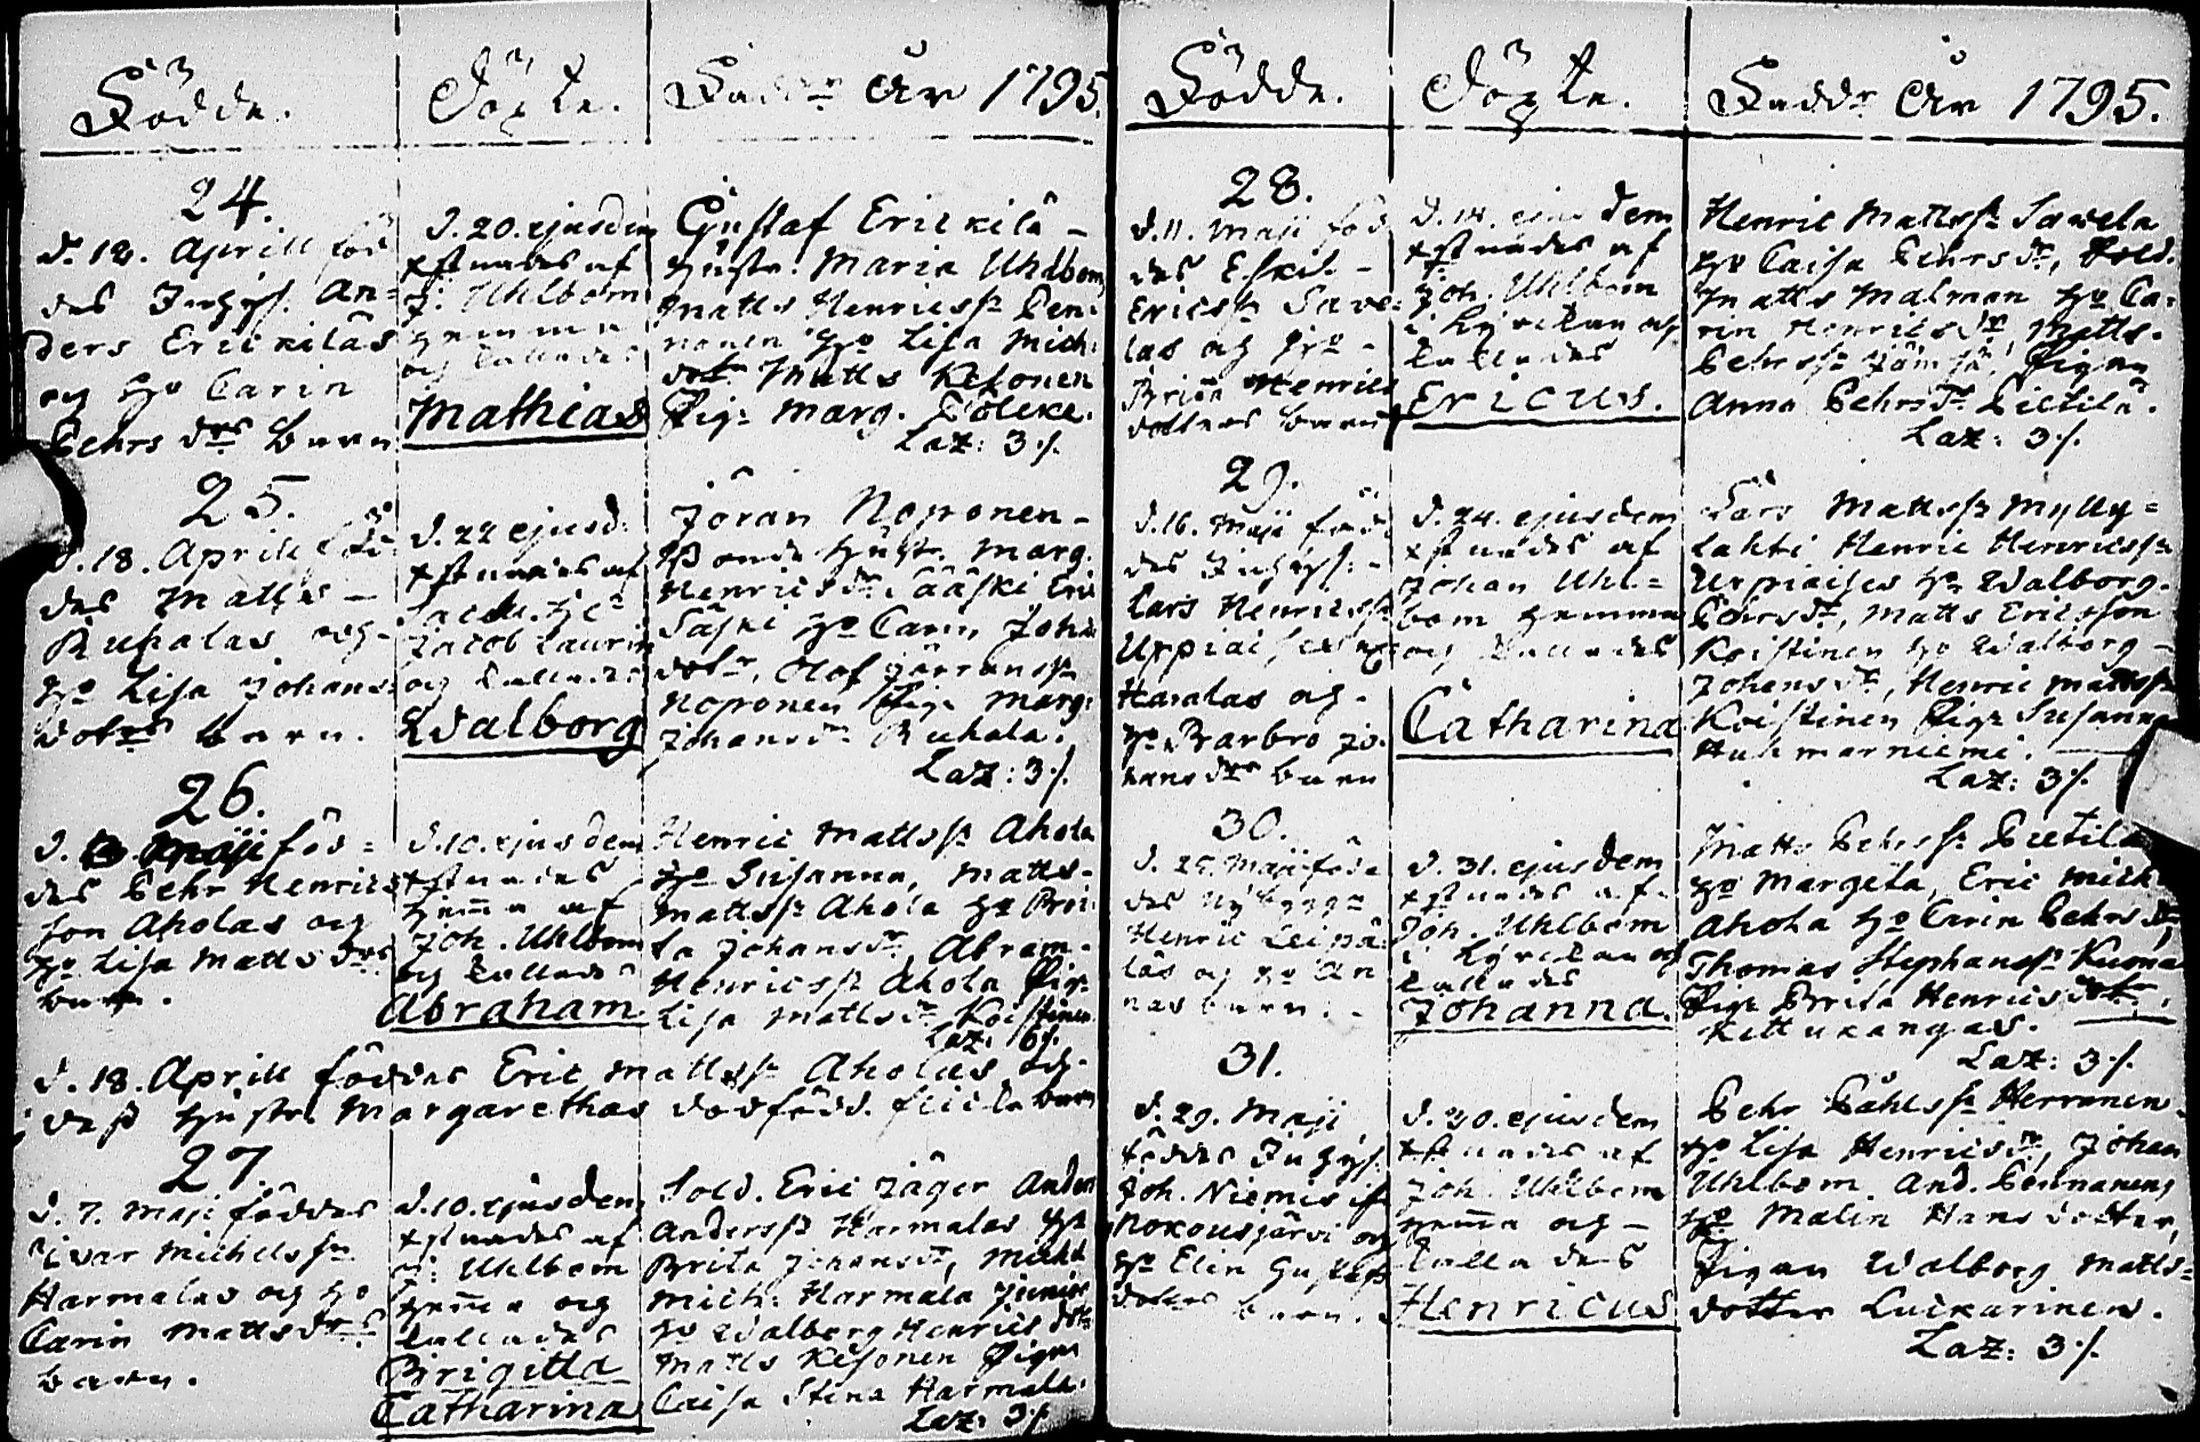 Födde.
Döpte.
Faddr År 1795.
24.
d. 12. Aprill föd
des Inhys. An=
ders Erickiläs
og Ho Carin
Pehrs drs barn
d. 20. ejusdem
xstnades af
J. Uhlbom
hemma
og kallades
Mathias
Gustaf Erickilä -
Hustr. Maria Uhlbom,
Matts Henricss: Pen
nonen Ho Lisa Mich:
dotr Matts Kesonen
Pig: Marg. Pölcke.
Laz: 3 ⁒
25.
d. 18. Aprill föd
des Matts -
Ruhalas og -
Ho Lisa Johans
dotrs barn.
d. 22 ejusd:
xstnades af
Jacob Laurin
og kallades
Walborg
Jöran Noponen -
Hustr. Marg.
Henricsdr Sääski Eric
Säski Ho Carin Johans
dotr, Olof Jörranss:
Noponen Pig: Marg:
Johansdr Ruhala.
Laz: 3 ⁒
26.
Maji föd=
des Pehr Henrics
son Aholas og
Ho Lisa Matts drs
barn.
d. 10. ejusdem
xstnades
hema af
Joh. Uhlbom
og kallades
Abraham
Henric Mattss: Ahola
Ho Susanna, Matts
Mattss: Ahola Ho Bri
ta Johansdr, Abram
Henricss: Ahola Pig:
Lisa Mattsdr Koistinen
Laz: 6 ⁒
d. 18. Aprill föddes Eric Mattss: Aholas og
dess Hustru Margarethas dödfödd. flicke barn
27.
d. 7. Maji föddes
Ivar Michelss:
Harmalas og Ho
Carin Matts drs
barn.
d. 10. ejusdem
xstnades af
J: Uhlbom
hema og
kallades
Brigitta
Catharina
Sold. Eric Jäger Anders
Anderss: Harmalas Ho
Brita Johansdr, Michel
Mich: Harmala junior
Ho Walborg Henrics dotr
Matts Kesonen Pigan
Caisa Stina Harmala.
Laz: 3 ⁒
Födde.
Döpte.
Faddr År 1795.
28.
d. 11. Maji föd
des Eskil -
Ericss: Save=
las og Ho -
Brita Henrics
dotters barn
d. 14. ejusdem
xstnades af
Joh. Uhlbom
i Kyrckan og
kallades
Ericus.
Henric Mattss: Sawela
Ho Caisa Pehrsdr, Sold.
Matts Malman Ho Ca=
rin Henricsdr, Matts
Pehrss: Jämsä, Pigan
Anna Pehrsdr Pietilä.
Laz: 3 ⁒
29.
d. 16. Maji föd
des Inhys: -
Lars Henricss:
Urpiaises
Haralas og -
Ho Barbro Jo=
hans drs barn
d. 24. ejusdem
xstnades af
Johan Uhl=
bom hemma
og kallades
Catharina
Lars Mattss: Mylly=
lahti Henric Henricss:
Urpiaises Ho Walborg
Pehrsdr, Matts Ericsson
Koistinen Ho Walborg -
Johansdr, Henric Mattss:
Koistinen Pig: Susanna
Huhmarniemi.
Laz: 3 ⁒
30.
d. 25. Maji föd
des Nybygg:
Henric Leinä
läs og Ho An
nas barn.
d. 31. ejusdem
xstnades af
Joh. Uhlbom
i Kyrckan og
kallades
Johanna.
Matts Pehrss: Pietila
Ho Margeta, Eric Mich
Ahola Ho Carin Pehrs dr,
Thomas Stephanss: Kuona
Pig: Brita Henrics dotr,
Kettukangas.
Laz: 3 ⁒
31.
d. 29. Maji
föddes Inhys:
Joh. Niemis
Nokousjärvi og
Ho Elin Gustafs
dotters barn.
d. 30. ejusdem
xstnades af
Joh. Uhlbom
hema og -
kallades
Henricus
Pehr Påhlss: Herranen
Ho Lisa Henricsdr, Johan
Uhlbom. And. Pennanen
Ho Malin Hans dotter,
Pigan Walborg Matts=
dotter Luckarinen.
Laz: 3 ⁒